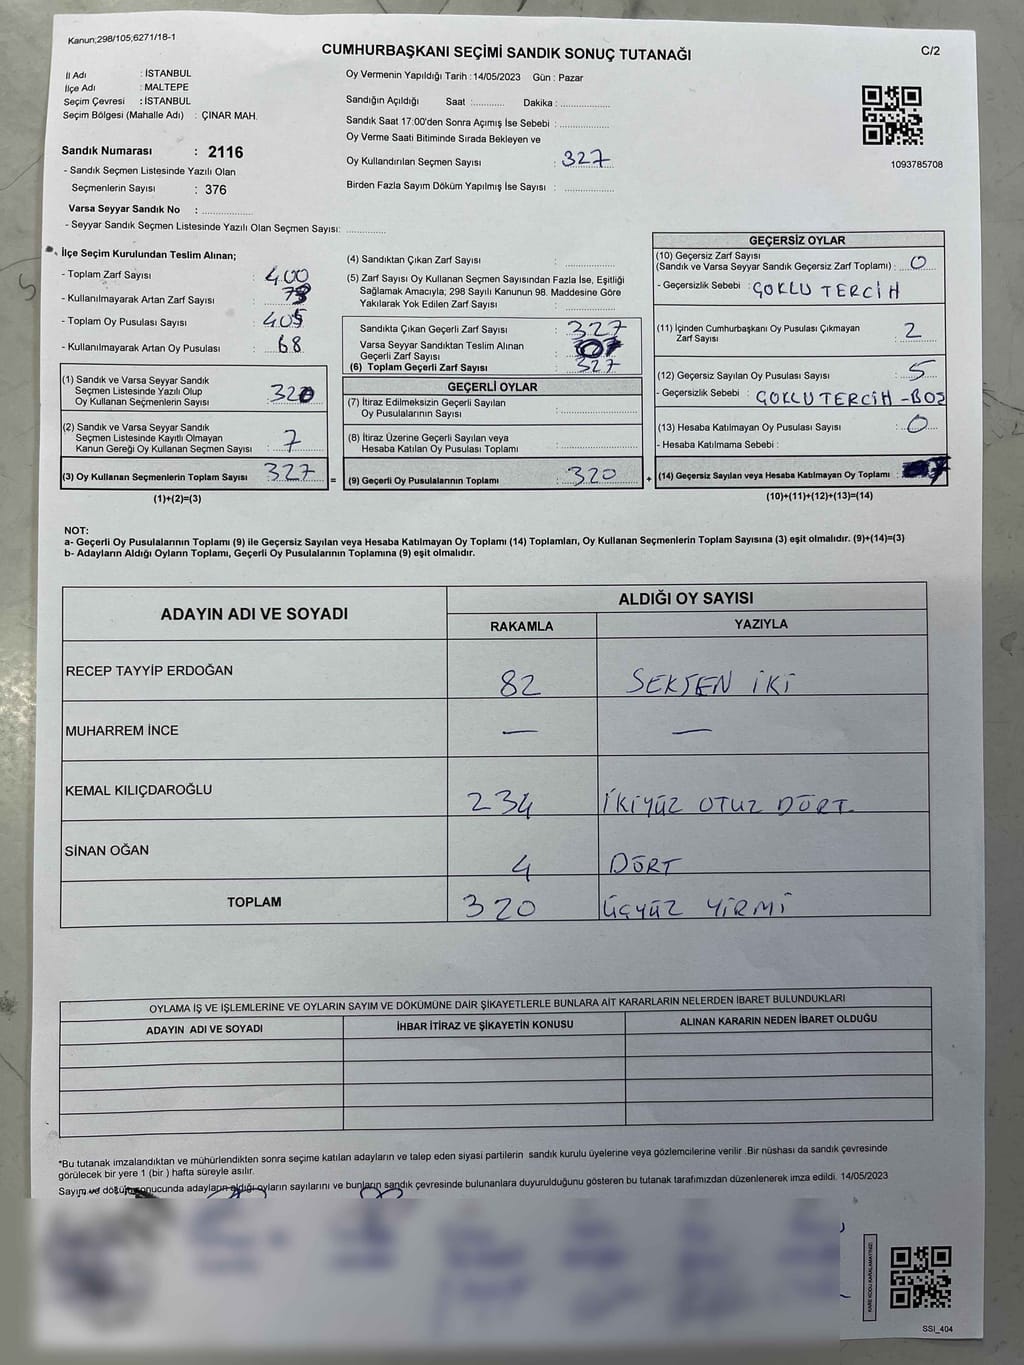 Kanun;298/105;6271/18-1
CUMHURBAŞKANI SEÇİMİ SANDIK SONUÇ TUTANAĞI
C/2
İl Adı : İSTANBUL
İlçe Adı : MALTEPE
Seçim Çevresi : İSTANBUL
Seçim Bölgesi (Mahalle Adı) : ÇINAR MAH.
Sandık Numarası : 2116
- Sandık Seçmen Listesinde Yazılı Olan
Seçmenlerin Sayısı : 376
Varsa Seyyar Sandık No : ...............
- Seyyar Sandık Seçmen Listesinde Yazılı Olan Seçmen Sayısı: ............
Oy Vermenin Yapıldığı Tarih :14/05/2023 Gün : Pazar
Sandığın Açıldığı Saat :........... Dakika : ................
Sandık Saat 17:00'den Sonra Açımış İse Sebebi : ................
Oy Verme Saati Bitiminde Sırada Bekleyen ve
Oy Kullandırılan Seçmen Sayısı : 327
Birden Fazla Sayım Döküm Yapılmış İse Sayısı : ................
1093785708
İlçe Seçim Kurulundan Teslim Alınan;
- Toplam Zarf Sayısı : 400
- Kullanılmayarak Artan Zarf Sayısı : 73
- Toplam Oy Pusulası Sayısı : 405
- Kullanılmayarak Artan Oy Pusulası : 68
(1) Sandık ve Varsa Seyyar Sandık
Seçmen Listesinde Yazılı Olup
Oy Kullanan Seçmenlerin Sayısı : 320
(2) Sandık ve Varsa Seyyar Sandık
Seçmen Listesinde Kayıtlı Olmayan
Kanun Gereği Oy Kullanan Seçmen Sayısı : 7
(3) Oy Kullanan Seçmenlerin Toplam Sayısı : 327
(1)+(2)=(3)
=
(4) Sandıktan Çıkan Zarf Sayısı : ................
(5) Zarf Sayısı Oy Kullanan Seçmen Sayısından Fazla İse, Eşitliği
Sağlamak Amacıyla, 298 Sayılı Kanunun 98. Maddesine Göre
Yakılarak Yok Edilen Zarf Sayısı : ................
Sandıkta Çıkan Geçerli Zarf Sayısı : 327
Varsa Seyyar Sandıktan Teslim Alınan
Geçerli Zarf Sayısı :
(6) Toplam Geçerli Zarf Sayısı : 327
GEÇERLİ OYLAR
(7) İtiraz Edilmeksizin Geçerli Sayılan
Oy Pusulalarının Sayısı : ................
(8) İtiraz Üzerine Geçerli Sayılan veya
Hesaba Katılan Oy Pusulası Toplamı : ................
(9) Geçerli Oy Pusulalarının Toplamı : 320
+
GEÇERSİZ OYLAR
(10) Geçersiz Zarf Sayısı
(Sandık ve Varsa Seyyar Sandık Geçersiz Zarf Toplamı) : 0
- Geçersizlik Sebebi : ÇOKLU TERCİH
(11) İçinden Cumhurbaşkanı Oy Pusulası Çıkmayan
Zarf Sayısı : 2
(12) Geçersiz Sayılan Oy Pusulası Sayısı : 5
- Geçersizlik Sebebi : ÇOKLU TERCİH - BOŞ
(13) Hesaba Katılmayan Oy Pusulası Sayısı : 0
- Hesaba Katılmama Sebebi :
(14) Geçersiz Sayılan veya Hesaba Katılmayan Oy Toplamı : 7
(10)+(11)+(12)+(13)=(14)
NOT:
a- Geçerli Oy Pusulalarının Toplamı (9) ile Geçersiz Sayılan veya Hesaba Katılmayan Oy Toplamı (14) Toplamları, Oy Kullanan Seçmenlerin Toplam Sayısına (3) eşit olmalıdır. (9)+(14)=(3)
b- Adayların Aldığı Oyların Toplamı, Geçerli Oy Pusulalarının Toplamına (9) eşit olmalıdır.
ADAYIN ADI VE SOYADI
ALDIĞI OY SAYISI
RAKAMLA YAZIYLA
RECEP TAYYİP ERDOĞAN 82 SEKSEN İKİ
MUHARREM İNCE — —
KEMAL KILIÇDAROĞLU 234 İKİYÜZ OTUZ DÖRT
SİNAN OĞAN 4 DÖRT
TOPLAM 320 ÜÇYÜZ YİRMİ
OYLAMA İŞ VE İŞLEMLERİNE VE OYLARIN SAYIM VE DÖKÜMÜNE DAİR ŞİKAYETLERLE BUNLARA AİT KARARLARIN NELERDEN İBARET BULUNDUKLARI
ADAYIN ADI VE SOYADI İHBAR İTİRAZ VE ŞİKAYETİN KONUSU ALINAN KARARIN NEDEN İBARET OLDUĞU
*Bu tutanak imzalandıktan ve mühürlendikten sonra seçime katılan adayların ve talep eden siyasi partilerin sandık kurulu üyelerine veya gözlemcilerine verilir .Bir nüshası da sandık çevresinde
görülecek bir yere 1 (bir ) hafta süreyle asılır.
Sayım ve döküm sonucunda adayların aldığı oyların sayılarını ve bunların sandık çevresinde bulunanlara duyurulduğunu gösteren bu tutanak tarafımızdan düzenlenerek imza edildi. 14/05/2023
SSI_404